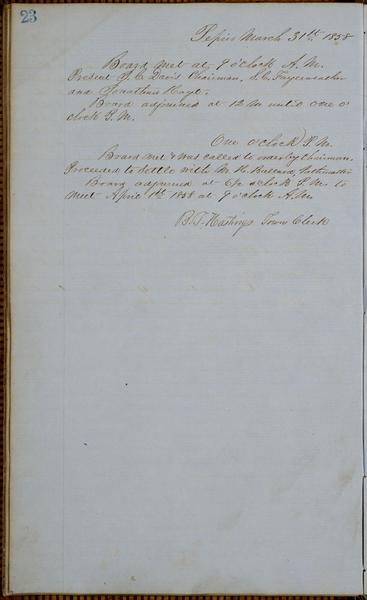 23
March 31st 1858
Board met at 9 o'clock A.M.
Present J. C. Davis Chairman, S. C.
and Jonathan Hoyt.
Board adjourned at 12 M until one o'
clock P.M.
One o'clock P.M.
Board met & was called to order by Chairman.
Proceeded to settle with M. H. Bullard,
Board adjourned at o'clock P.M. to
meet April 1st 1858 at 9 o'clock A.M.
B. T. Hastings Town Clerk